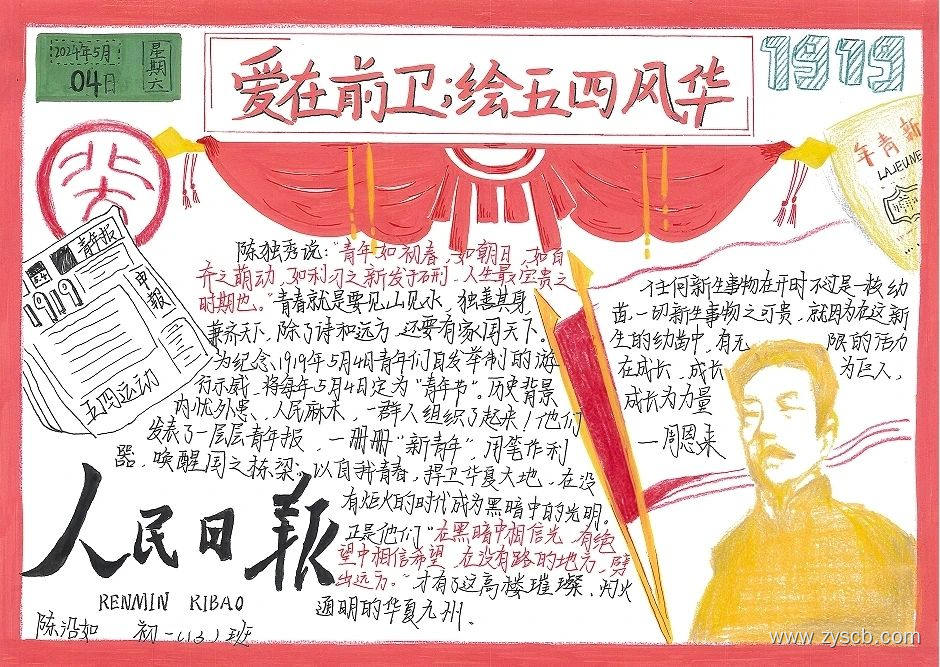 2024年5月
04日
星期六
爱在前卫;绘五四风华
1919
北大
新青年
LAJEUNE
青年报
申报
1919
五四运动
陈独秀说:“青年如初春,如朝日,如百
卉之萌动,如利刃之新发于硎,人生最宝贵之
时期也。”青春就是要见山见水,独善其身
兼济天下,除了诗和远方,还要有家国天下。
为纪念1919年5月4日青年们自发举制的游
行示威,将每年5月4日定为“青年节”。历史背景
内忧外患、人民麻木,一群人组织了起来!他们
发表了一层层青年报,一册册“新青年”,用笔作利
器,唤醒国之栋梁;以自我青春,捍卫华夏大地,在没
有炬火的时代成为黑暗中的光明。
正是他们“在黑暗中相信光,在绝
望中相信希望,在没有路的地方,劈
出远方。”才有了这高楼璀璨,灯火
通明的华夏九州。
任何新生事物在开时不过是一株幼
苗,一切新生事物之可贵,就因为在这新
生的幼苗中,有无限的活力
在成长,成长为巨人,
成长为力量
—周恩来
人民日报
RENMIN RIBAO
陈沿如 初一(13)班
www.zyscb.com